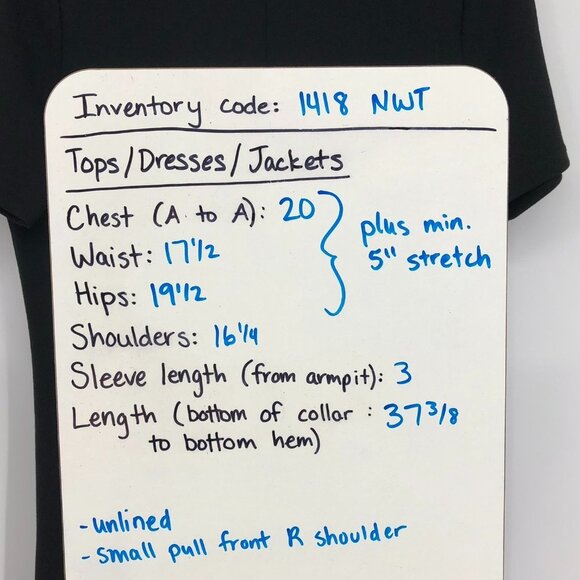 Inventory code: 1418 NWT
Tops/Dresses/Jackets
Chest (A to A): 20
Waist: 17 1/2
Hips: 19 1/2
plus min.
5" stretch
Shoulders: 16 1/4
Sleeve length (from armpit): 3
Length (bottom of collar : 37 3/8
to bottom hem)
- unlined
- small pull front R shoulder